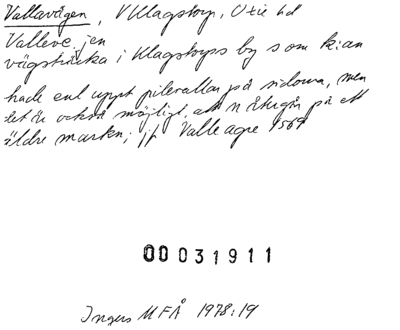 Vallavägen, V Klagstorp, Oxie hd
Valleve, en
vägsträcka i Klagstorps by som k:an
hade enl uppt pilevallar på sidorna, men
det är också möjligt, att n återgår på ett
äldre markn; jfr Valle agre 1569
00031911
Ingers MFÅ 1978:19